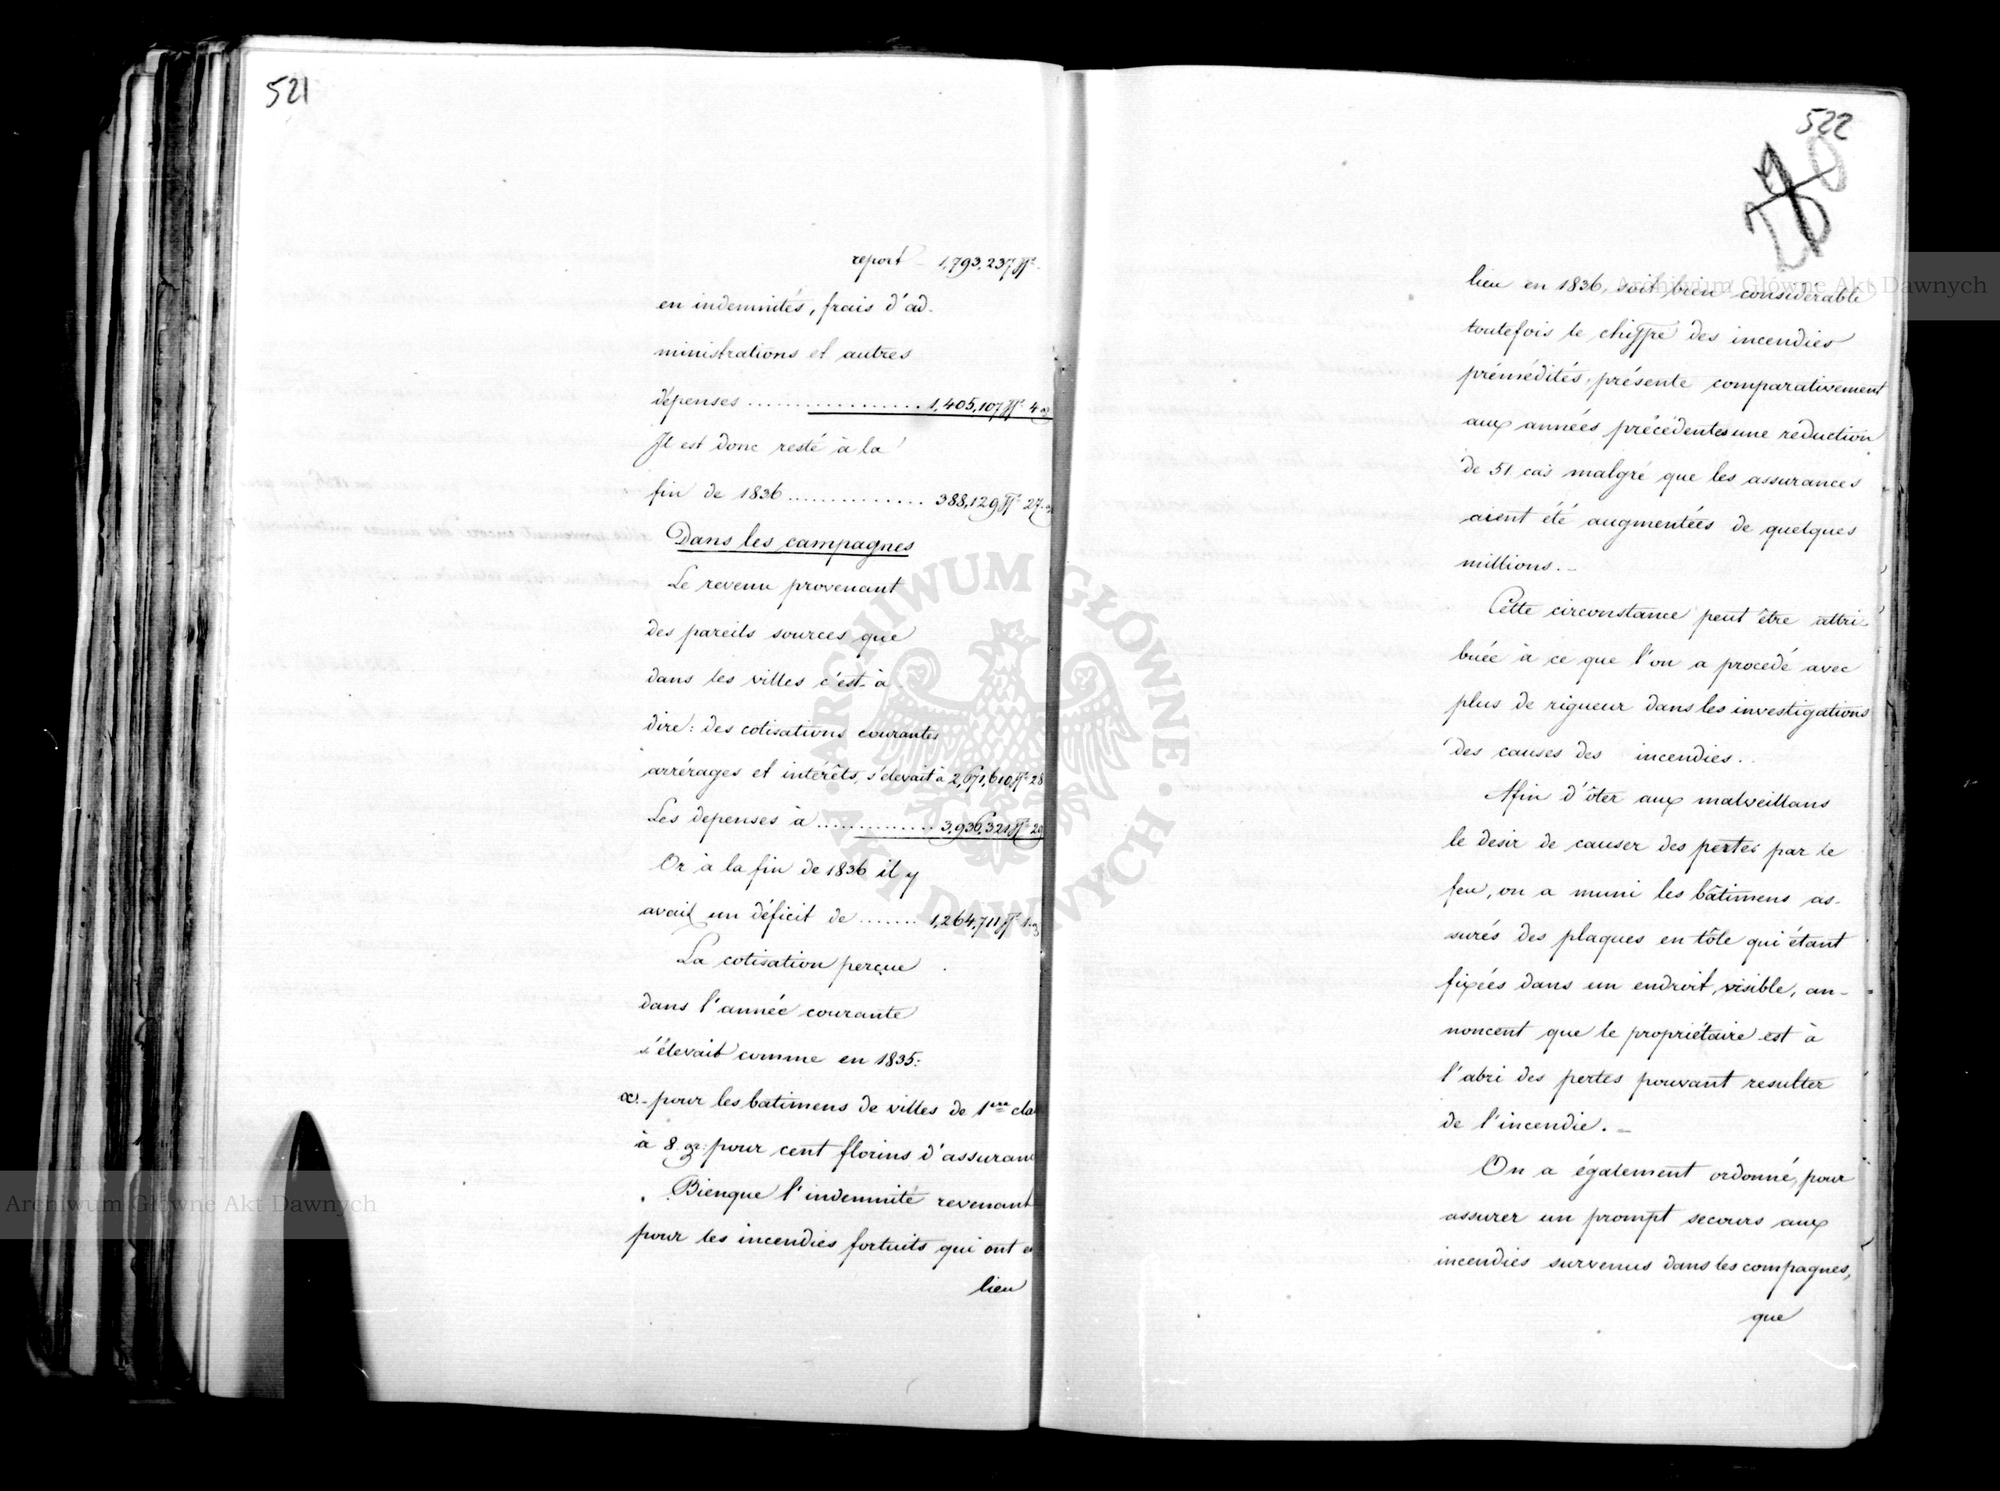 521
report - 1,793,237 ff.
en indemnités, frais d'ad-
ministrations et autres
dépenses .................. 1,405,107 ff. 4 g
Il est donc resté à la
fin de 1836 .............. 388,129 ff. 27 g
Dans les campagnes
Le revenu provenant
des pareils sources que
dans les villes c'est-à-
dire: des cotisations courantes
arrérages et intérêts, s'elevait à 2,671,610 ff. 28
Les depenses à ............. 3,936,321 ff. 29
Or à la fin de 1836 il y
avait un déficit de ....... 1,264,711 ff. 1 g
La cotisation perçue
dans l'année courante
s'élevait comme en 1835:
a.- pour les batimens de villes de 1ere cla
à 8. gr: pour cent florins d'assuran
Bienque l'indemnité revenant
pour les incendies fortuits qui ont e
lieu
522
lieu en 1836, soit bien considerable
toutefois le chiffre des incendies
prémédités, présente comparativement
aux années précédentes une reduction
de 51 cas malgré que les assurances
aient été augmentées de quelques
millions.-
Cette circonstance peut être attri-
buée à ce que l'on a procedé avec
plus de rigueur dans les investigations
des causes des incendies.
Afin d'ôter aux malveillans
le desir de causer des pertes par le
feu, on a muni les bâtimens as-
surés des plaques en tôle qui étant
fixées dans un endroit visible, an-
noncent que le propriétaire est à
l'abri des pertes pouvant resulter
de l'incendie.-
On a également ordonné, pour
assurer un prompt secours aux
incendies survenus dans les compagnes,
que
Archiwum Główne Akt Dawnych
Archiwum Główne Akt Dawnych
ARCHIWUM GŁÓWNE AKT DAWNYCH